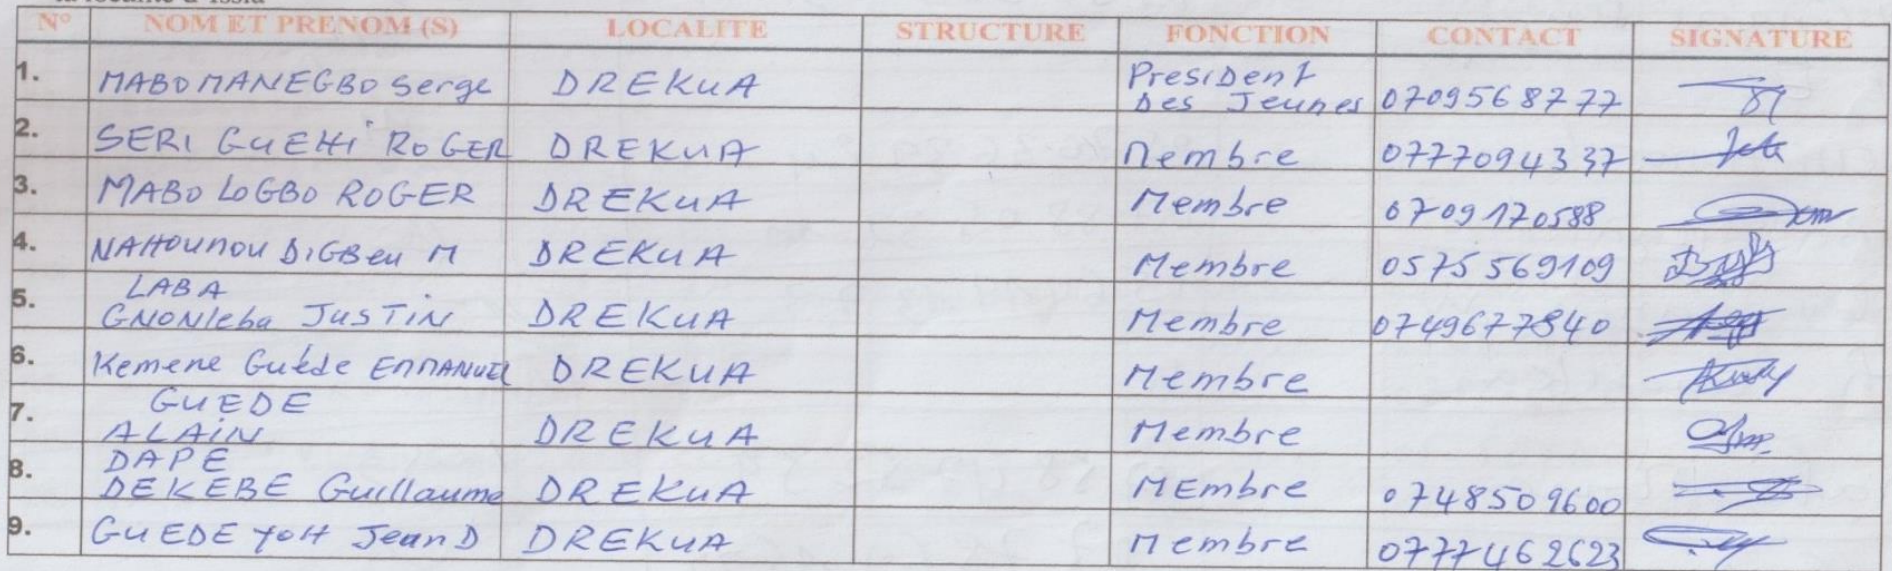 N° NOM ET PRENOM (S) LOCALITE STRUCTURE FONCTION CONTACT SIGNATURE
1. MABO MANEGBO Serge DREKUA Président Des Jeunes 0709568777
2. SERI GUEHI ROGER DREKUA Membre 0777094337
3. MABO LOGBO ROGER DREKUA Membre 0709170588
4. NAHOUNOU DIGBeu M DREKUA Membre 0575569109
5. LABA GNONleba JUSTIN DREKUA Membre 0749677840
6. Kemene Guédé EMMANUEL DREKUA Membre
7. GUEDE ALAIN DREKUA Membre
8. DAPE DEKEBE Guillaume DREKUA MEmbre 0748509600
9. GUEDE YOH Jean D DREKUA Membre 0777462623